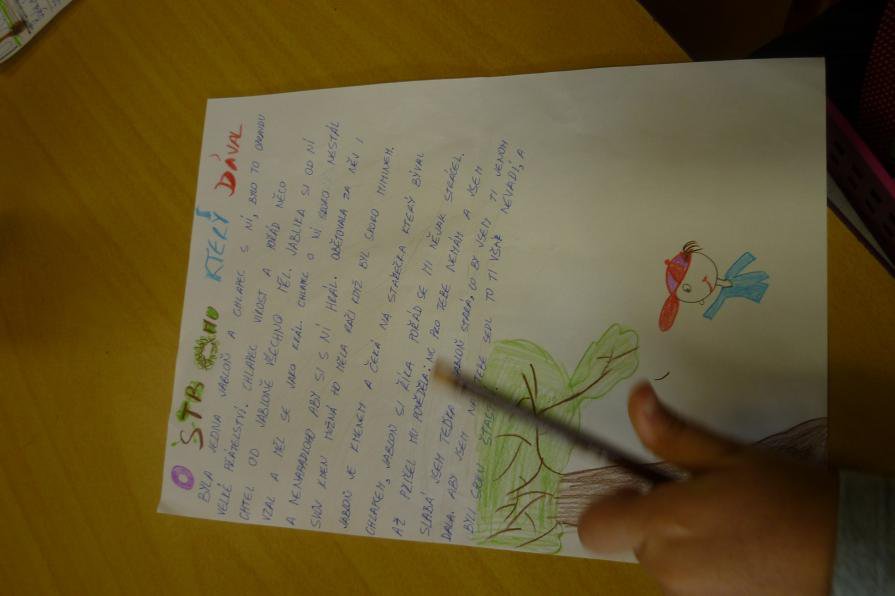 O STROMU KTERÝ DÁVAL
BYLA JEDNA JABLOŇ A CHLAPEC S NÍ, BYLO TO OPRAVDU
VELKÉ PŘÁTELSTVÍ. CHLAPEC VYROST A POŘÁD NĚCO
CHTEL OD JABLONĚ VŠECHNO MĚL. JABLKA SI OD NÍ
VZAL A MĚL SE JAKO KRÁL CHLAPEC O NÍ SKORO NESTÁL
A NENAPADLOHO ABY SI S NÍ HRÁL. OBĚTOVALA ZA NĚJ I
SVŮJ KMEN MOŽNÁ TO MĚLA RÁČI KDYŽ BYL SKORO MIMINEM.
JABLOŇ JE KMENEM A ČEKÁ NA STAŘEČKA KTERÝ BÝVAL
CHLAPCEM, JABLOŇ SI ŘÍKA POŘÁD SE MI NĚJAK STRÁCEL.
AŽ PŘIŠEL MU POVĚDĚLA: NIC PRO TEBE NEMÁM A JSEM
SLABÁ JSEM TEĎKA JABLOŇ STARÁ, CO BY JSEM TI JENOM
DALA. ABY JSEM NA TEBE SEDL TO TI VŠAK NEVADÍ, A
BYLI SPOLU